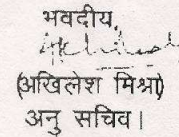 भवदीय,
(अखिलेश मिश्रा)
अनु सचिव।